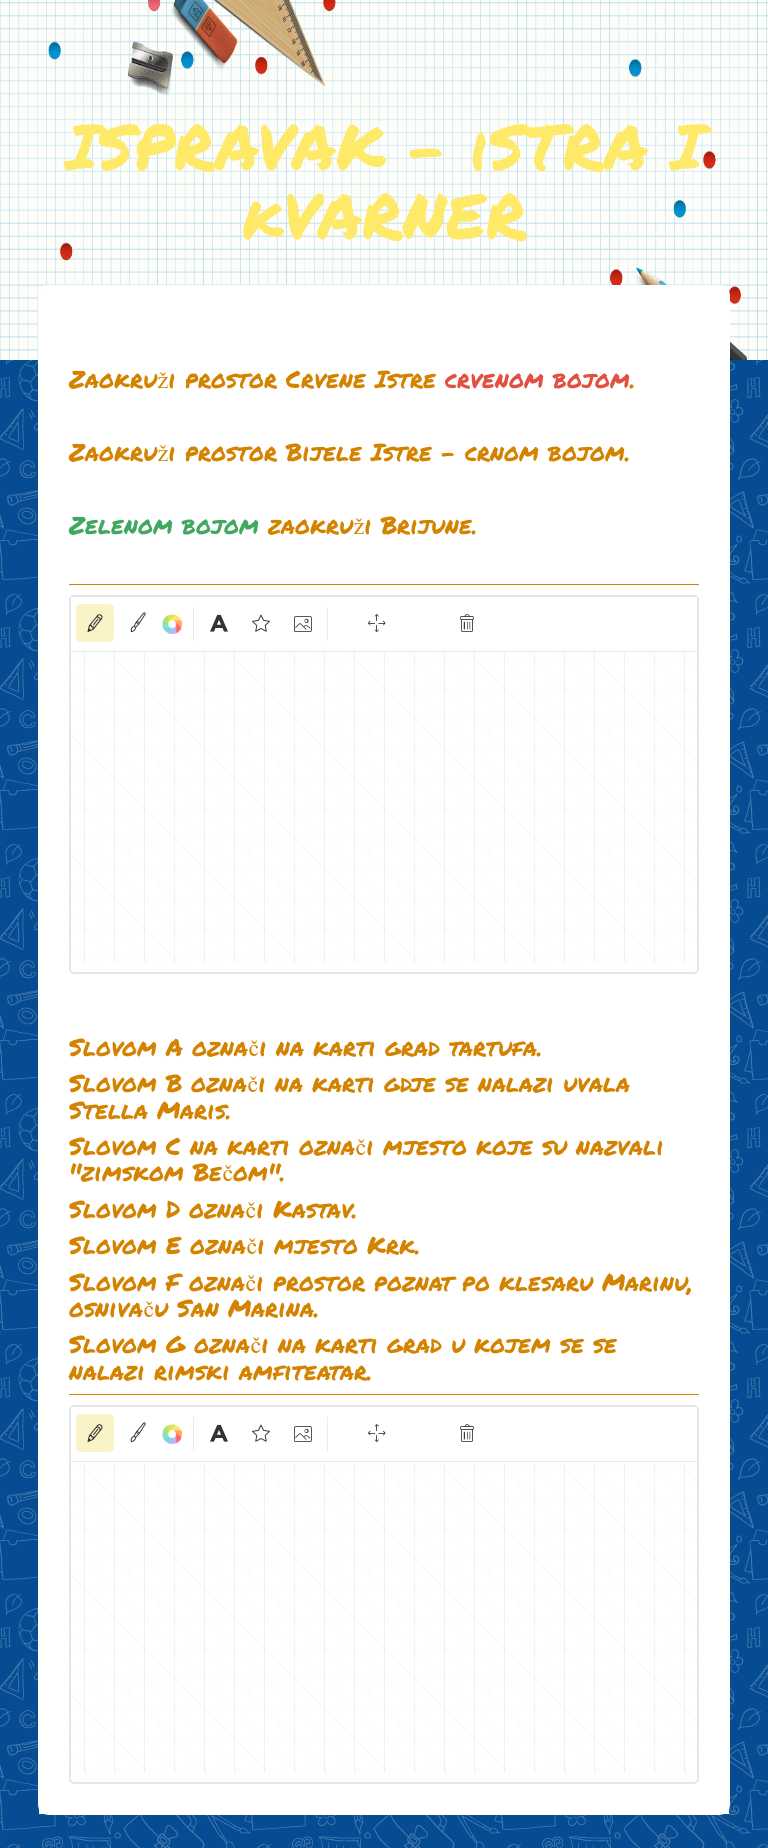 ISPRAVAK - iSTRA I
kVARNER
Zaokruži prostor Crvene Istre crvenom bojom.
Zaokruži prostor Bijele Istre - crnom bojom.
Zelenom bojom zaokruži Brijune.
A
Slovom A označi na karti grad tartufa.
Slovom B označi na karti gdje se nalazi uvala
Stella Maris.
Slovom C na karti označi mjesto koje su nazvali
"zimskom Bečom".
Slovom D označi Kastav.
Slovom E označi mjesto Krk.
Slovom F označi prostor poznat po klesaru Marinu,
osnivaču San Marina.
Slovom G označi na karti grad u kojem se se
nalazi rimski amfiteatar.
A